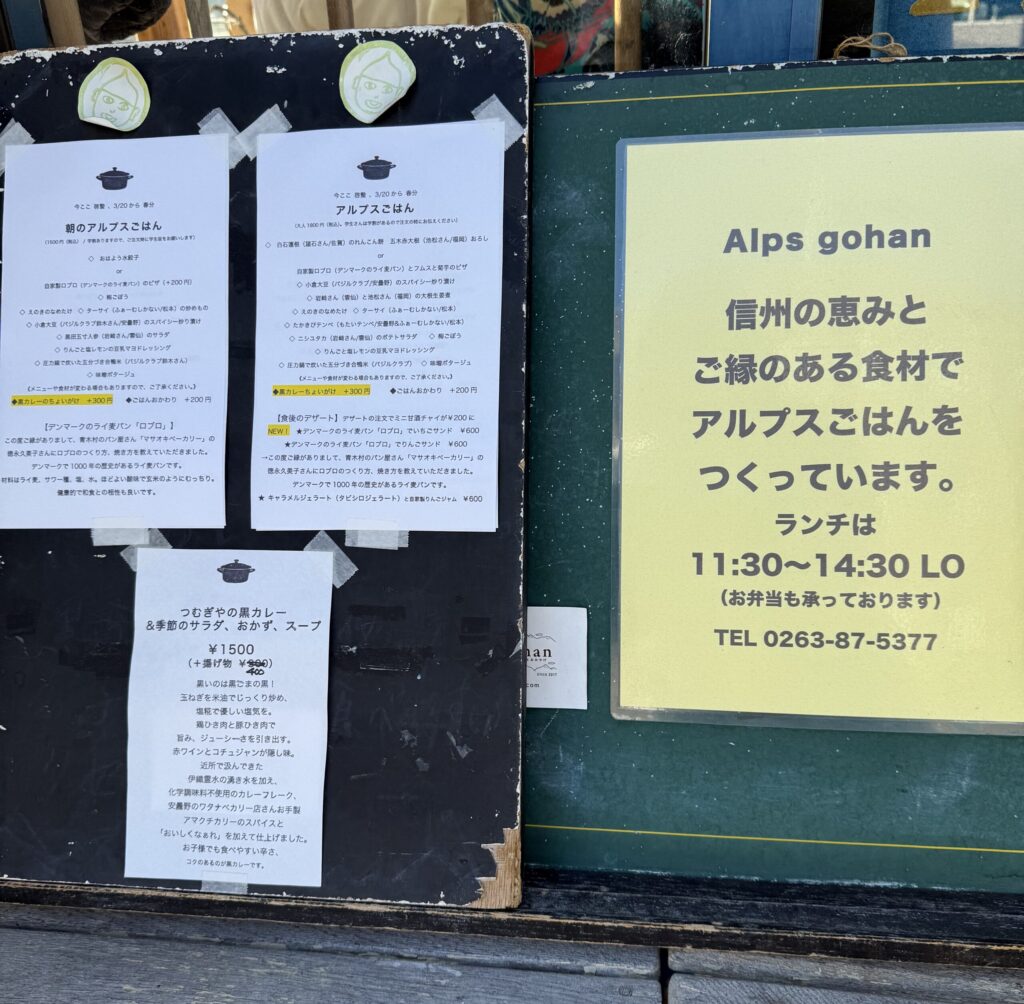 今ここ 啓蟄 、3/20から 春分
朝のアルプスごはん
(1600円（税込） / 学割ありますので、ご注文時に学生証をお願いします)
◇ おはよう水餃子
or
自家製ロブロ（デンマークのライ麦パン）のピザ（＋200円）
◇ 梅ごぼう
◇ えのきのなめたけ ◇ ターサイ（ふぁーむしかない/松本）の炒めもの
◇ 小倉大豆（バジルクラブ鈴木さん/安曇野）のスパイシー炒り漬け
◇ 黒田五寸人参（岩崎さん/雲仙）のサラダ
◇ りんごと塩レモンの豆乳マヨドレッシング
◇ 圧力鍋で炊いた五分づき合鴨米（バジルクラブ鈴木さん）
◇ 味噌ポタージュ
《メニューや食材が変わる場合もありますので、ご了承ください。》
◆黒カレーのちょいがけ ＋300円 ◆ごはんおかわり ＋200円
【デンマークのライ麦パン「ロブロ」】
この度ご縁がありまして、青木村のパン屋さん「マサオキベーカリー」の
徳永久美子さんにロブロのつくり方、焼き方を教えていただきました。
デンマークで1000年の歴史があるライ麦パンです。
材料はライ麦、サワー種、塩、水。ほどよい酸味で玄米のようにむっちり。
健康的で和食との相性も良いです。
今ここ 啓蟄 、3/20から 春分
アルプスごはん
(大人1800円（税込）、学生さんは学割があるので注文の時にお伝えください)
◇ 白石蓮根（碇石さん/佐賀）のれんこん餅 五木赤大根（池松さん/福岡）おろし
or
自家製ロブロ（デンマークのライ麦パン）とフムスと菊芋のピザ
◇ 小倉大豆（バジルクラブ/安曇野）のスパイシー炒り漬け
◇ 岩崎さん（雲仙）と池松さん（福岡）の大根生姜煮
◇ えのきのなめたけ ◇ ターサイ（ふぁーむしかない/松本）
◇ たかきびテンペ（もたいテンペ/安曇野&ふぁーむしかない/松本）
◇ ニシユタカ（岩崎さん/雲仙）のポテトサラダ ◇ 梅ごぼう
◇ りんごと塩レモンの豆乳マヨドレッシング
◇ 圧力鍋で炊いた五分づき合鴨米（バジルクラブ） ◇ 味噌ポタージュ
《メニューや食材が変わる場合もありますので、ご了承ください。》
◆黒カレーのちょいがけ ＋300円 ◆ごはんおかわり ＋200円
【食後のデザート】 デザートの注文でミニ甘酒チャイが￥200に
NEW！ ★デンマークのライ麦パン「ロブロ」でいちごサンド ￥600
★デンマークのライ麦パン「ロブロ」でりんごサンド ￥600
→この度ご縁がありまして、青木村のパン屋さん「マサオキベーカリー」の
徳永久美子さんにロブロのつくり方、焼き方を教えていただきました。
デンマークで1000年の歴史があるライ麦パンです。
★ キャラメルジェラート（タビシロジェラート）と自家製りんごジャム ￥600
つむぎやの黒カレー
&季節のサラダ、おかず、スープ
￥1500
（＋揚げ物 ￥300）
400
黒いのは黒ごまの黒！
玉ねぎを米油でじっくり炒め、
塩糀で優しい塩気を。
鶏ひき肉と豚ひき肉で
旨み、ジューシーさを引き出す。
赤ワインとコチュジャンが隠し味。
近所で汲んできた
伊織霊水の湧き水を加え、
化学調味料不使用のカレーフレーク、
安曇野のワタナベカリー店さんお手製
アマクチカリーのスパイスと
「おいしくなぁれ」を加えて仕上げました。
お子様でも食べやすい辛さ、
コクのあるのが黒カレーです。
Alps gohan
信州の恵みと
ご縁のある食材で
アルプスごはんを
つくっています。
ランチは
11:30〜14:30 LO
（お弁当も承っております）
TEL 0263-87-5377
han
SINCE 2017
.com